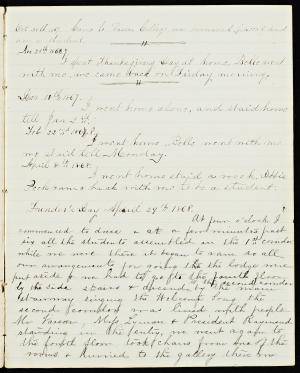 Nov. 28th 1867.
I spent Thanksgiving day at home. Belle went
with me, we came back on Friday morning.
Dec. 18th 1867.
I went home alone, and staid home
till Jan 2d.
Feb. 22d 1868.
I went home. Belle went with me
we staid till Monday.
April 1868.
I went home staid a week,
back with me to be a student.
Founder's Day April 29th 1868.
At four o'clock I
commenced to dress & at a few minutes past
six all the students assembled in the 1st corridor
while we were there it began to rain so all
our arrangements for going the lodge were
put aside & we had to go up to the fourth floor
by the side stairs & descend by the main
stairway singing the Welcome Song the
second corridor was lined with people
Mr Vassar, Miss Lyman & President Raymond
standing in the centre, we went again to
the fourth floor took chairs from one of the
rooms & hurried to the gallery there we